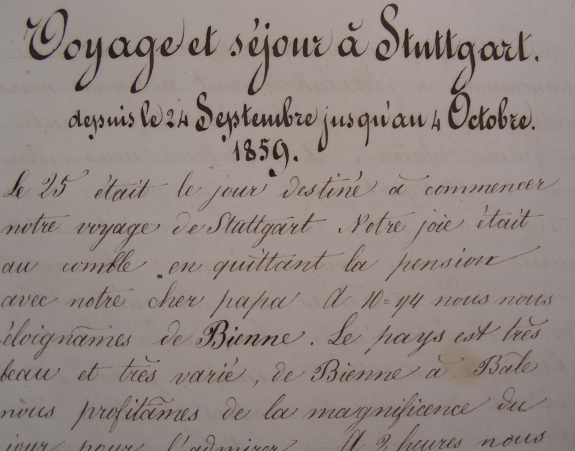 Voyage et séjour à Stuttgart.
depuis le 24 Septembre jusqu'au 4 Octobre.
1859.
Le 25 était le jour destiné à commencer
notre voyage de Stuttgart Notre joie était
au comble en quittant la pension
avec notre cher papa A 10=44 nous nous
éloignâmes de Bienne. Le pays est très
beau et très varié, de Bienne à Bale
nous profitâmes de la magnificence du
jour pour l'admirer A 2 heures nous